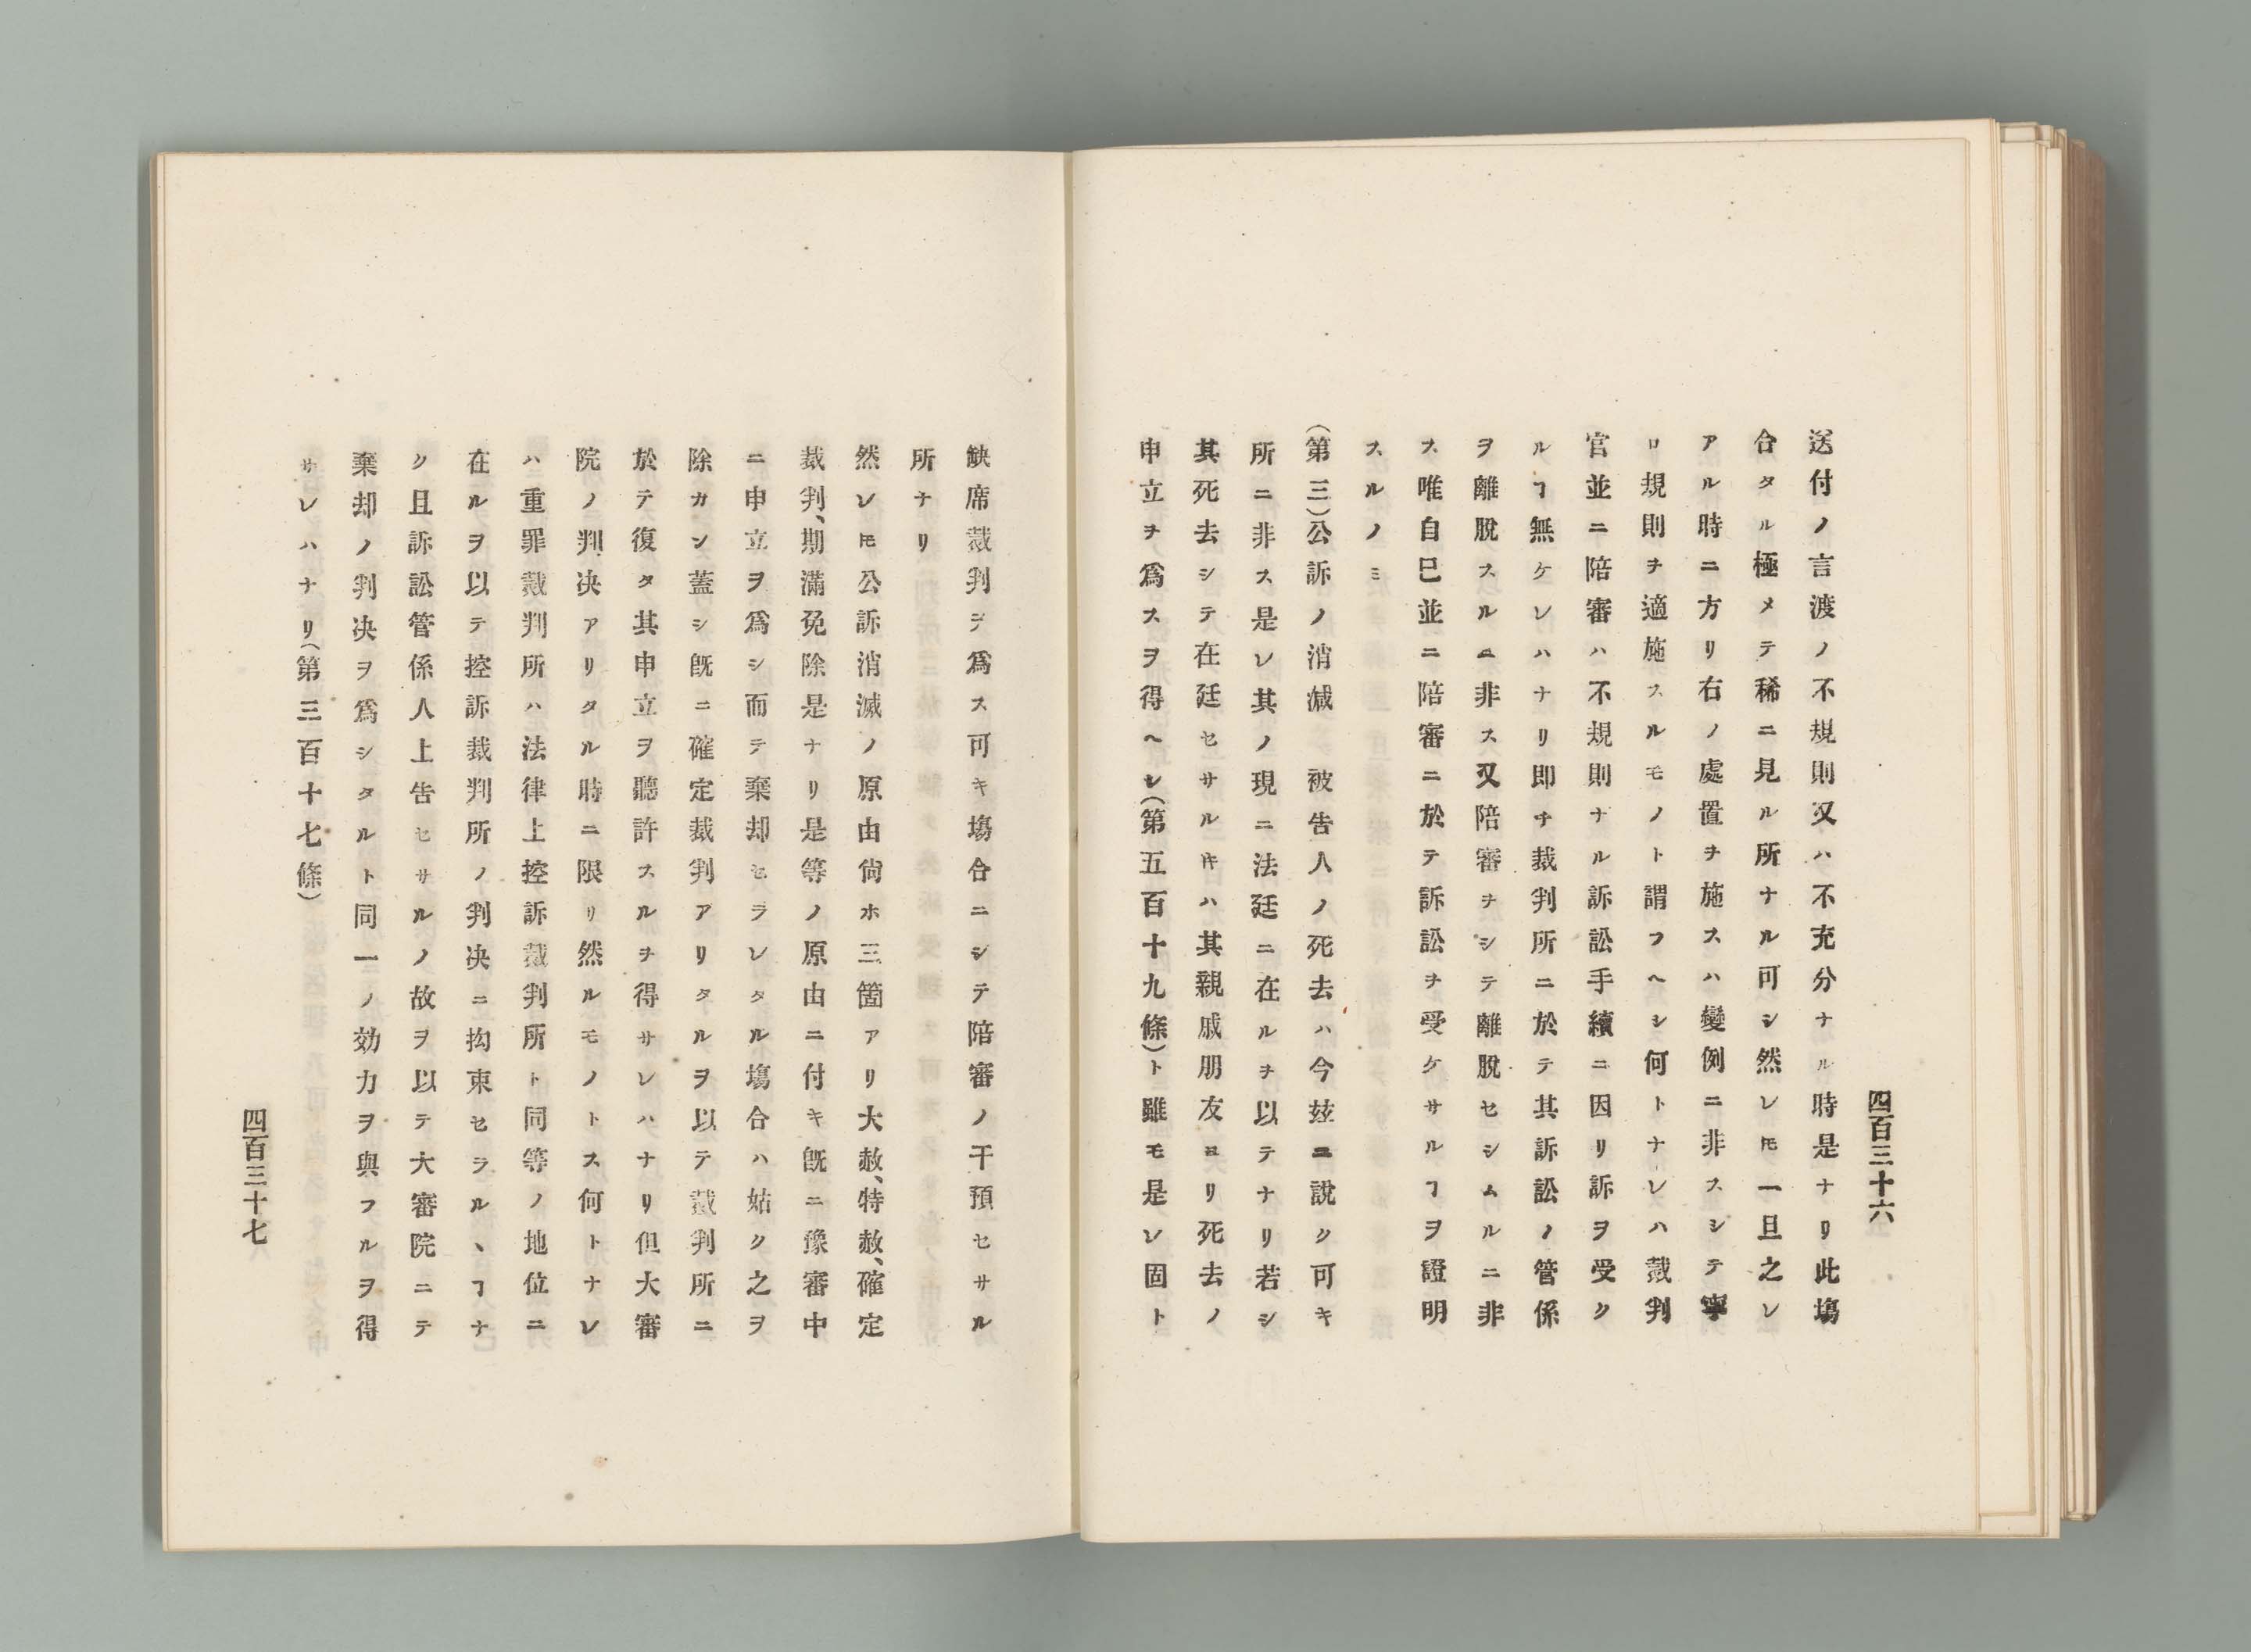 四百三十六
送付ノ言渡ノ不規則又ハ不充分ナル時是ナリ此塲
合タル極メテ稀ニ見ル所ナル可シ然レ𪜈一旦之レ
アル時ニ方リ右ノ處置ヲ施スハ變例ニ非スシテ寧
ロ規則ヲ適施スルモノト謂フヘシ何トナレハ裁判
官並ニ陪審ハ不規則ナル訴訟手續ニ因リ訴ヲ受ク
ルヿ無ケレハナリ即チ裁判所ニ於テ其訴訟ノ管係
ヲ離脫スルニ非ス又陪審ヲシテ離脫セシムルニ非
ス唯自巳並ニ陪審ニ於テ訴訟ヲ受ケサルヿヲ證明
スルノミ
(第三)公訴ノ消滅 被告人ノ死去ハ今玆ニ說ク可キ
所ニ非ス是レ其ノ現ニ法廷ニ在ルヲ以テナリ若シ
其死去シテ在廷セサルキハ其親戚朋友ヨリ死去ノ
申立ヲ爲スヲ得ヘレ(第五百十九條)ト雖モ是レ固ト
缺席裁判ヲ爲ス可キ塲合ニシテ陪審ノ干預セサル
所ナリ
然レ𪜈公訴消滅ノ原由尙ホ三箇アリ大赦、特赦、確定
裁判、期滿免除是ナリ是等ノ原由ニ付キ旣ニ豫審中
ニ申立ヲ爲シ而テ棄却セラレタル塲合ハ姑ク之ヲ
除カン蓋シ旣ニ確定裁判アリタルヲ以テ裁判所ニ
於テ復タ其申立ヲ聽許スルヲ得サレハナリ但大審
院ノ判決アリタル時ニ限リ然ルモノトス何トナレ
ハ重罪裁判所ハ法律上控訴裁判所ト同等ノ地位ニ
在ルヲ以テ控訴裁判所ノ判决ニ拘束セラルヽヿナ
ク且訴訟管係人上告セサルノ故ヲ以テ大審院ニテ
棄却ノ判决ヲ爲シタルト同一ノ効力ヲ與フルヲ得
サレハナリ(第三百十七條)
四百三十七